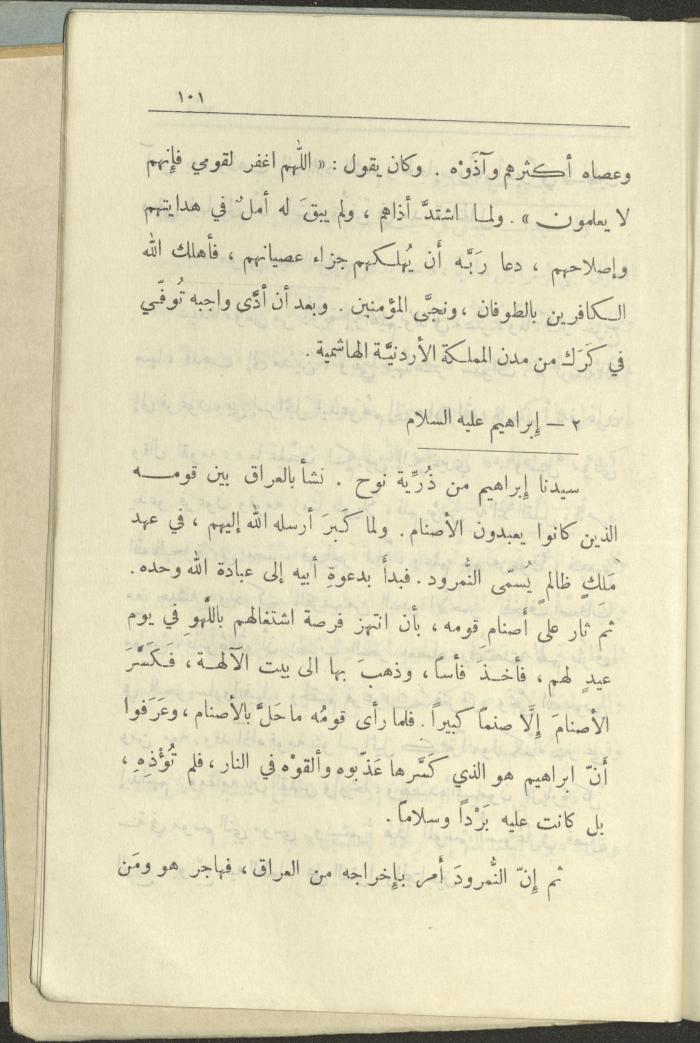 ١٠١
وعصاه أكثرهم وآذَوْه . وكان يقول : « اللّهم اغفر لقومي فإِنهم
لا يعلمون » . ولما اشتدَّ أذاهم ، ولم يبقَ له أملٌ في هدايتهم
وإصلاحهم ، دعا رَبَّه أَن يُهلكهم جزاء عصيانهم ، فأهلك الله
الكافرين بالطوفان ، ونجَّى المؤمنين . وبعد أن أدَّى واجبه تُوفّي
في كَرَك من مدن المملكة الأردنيَّة الهاشمية .
٢ — إبراهيم عليه السلام
سيدنا إبراهيم من ذُرِّية نوح . نشأ بالعراق بين قومه
الذين كانوا يعبدون الأصنام . ولما كَبرَ أرسله الله إليهم ، في عهد
مَلكٍ ظالمٍ يُسمّى النُّمرود . فبدأَ بدعوةِ أبيه إلى عبادة الله وحده .
ثم ثار على أَصنامِ قومه ، بأن انتهز فرصة اشتغالهم باللَّهوِ في يوم
عيدٍ لهم ، فأخذَ فأساً ، وذهبَ بها الى بيت الآلهة ، فكَسَّرَ
الأصنامَ إِلَّا صنماً كبيراً . فلما رأى قومُه ما حَلَّ بالأصنام ، وعَرَفوا
أَنّ ابراهيم هو الذي كَسَّرها عَذّبوه وألقوْه في النار ، فلم تُؤْذِهِ ،
بل كانت عليه بَرْداً وسلاماً .
ثم إِنّ النُّمرودَ أَمر بإِخراجه من العراق ، فهاجر هو ومَن